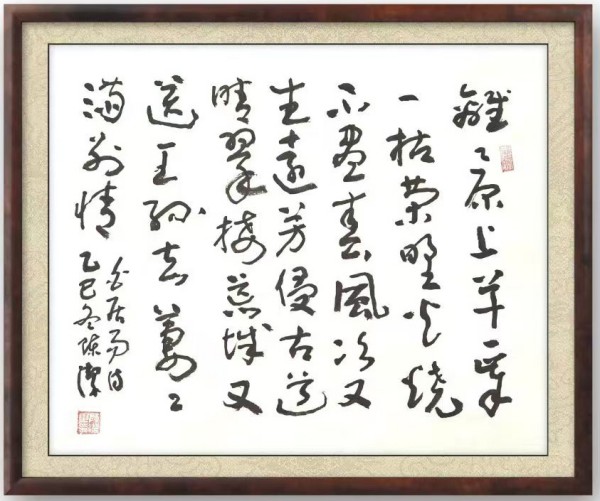 離〻原上草一歲
一枯榮野火燒
不盡春風吹又
生遠芳侵古道
晴翠接荒城又
送王孫去萋〻
滿別情
白居易詩
乙巳冬陳潔